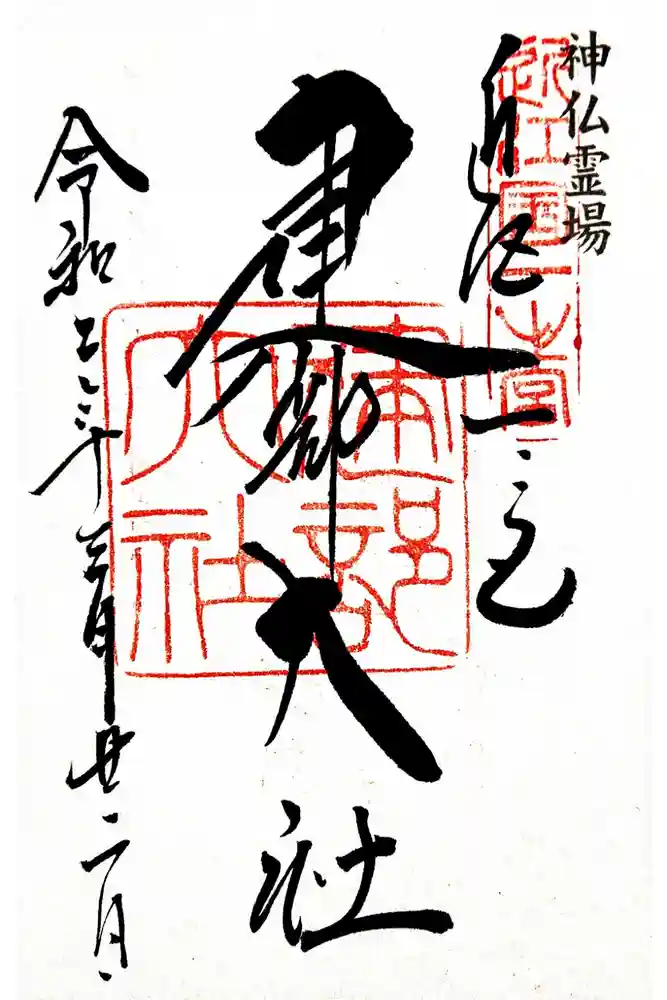 神仏霊場
近江国一之宮
近江一之宮
建部大社
建部
大社
令和
年三月廿二日